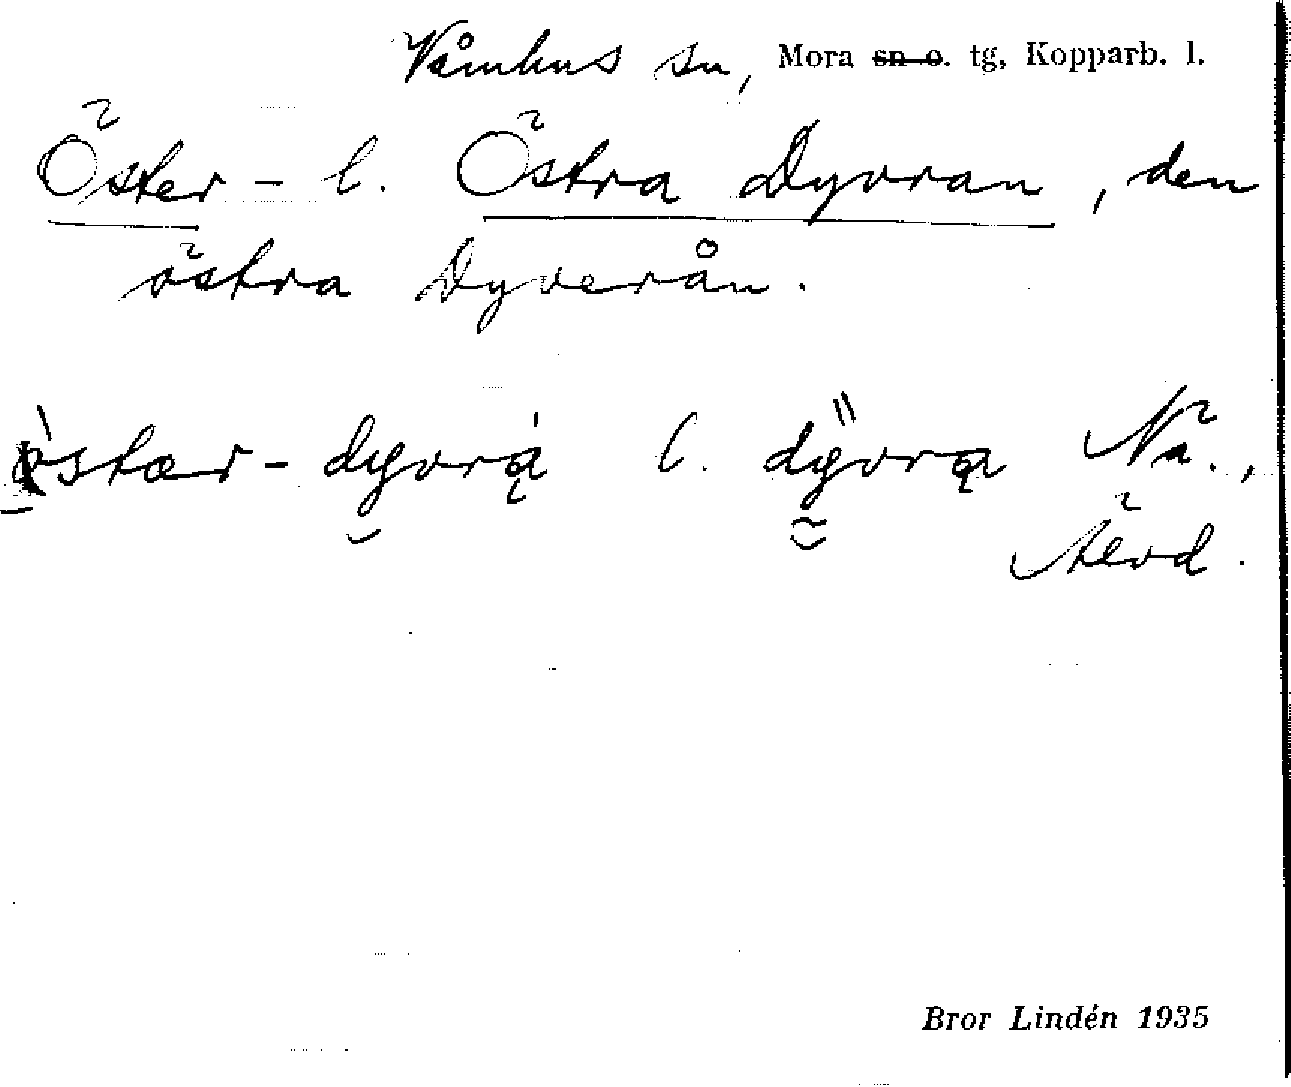 Våmhus sn, Mora sn o. tg, Kopparb. l.
Öster- l. Östra Dyvran, den
östra Dyverån.
östær-dyvrą́ l. dÿvrą Nä.,
Bror Lindén 1935